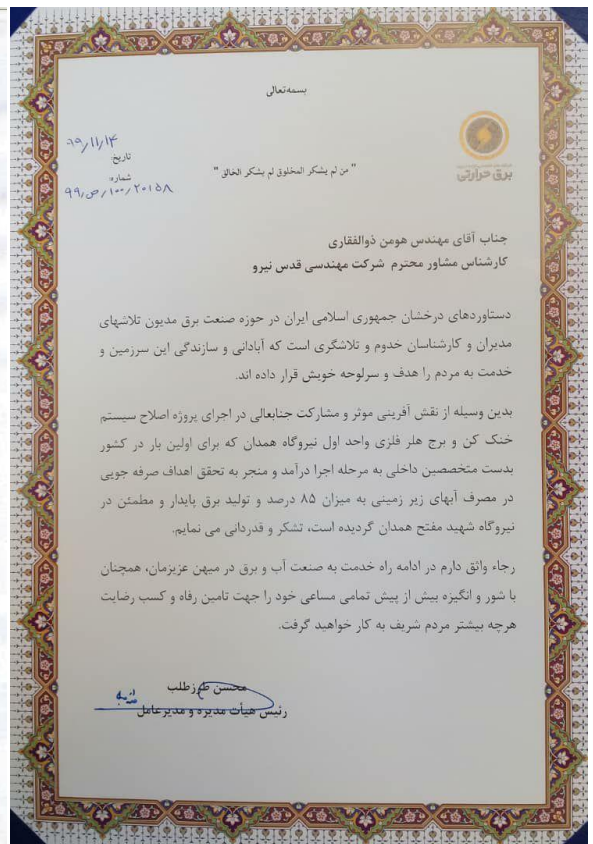 بسمه‌تعالی
برق حرارتی
۹۹/۱۱/۱۴
تاریخ:
شماره:
۹۹/ص/۱۰۰/۲۰۱۵۸
" من لم یشکر المخلوق لم یشکر الخالق "
جناب آقای مهندس هومن ذوالفقاری
کارشناس مشاور محترم شرکت مهندسی قدس نیرو
دستاوردهای درخشان جمهوری اسلامی ایران در حوزه صنعت برق مدیون تلاشهای
مدیران و کارشناسان خدوم و تلاشگری است که آبادانی و سازندگی این سرزمین و
خدمت به مردم را هدف و سرلوحه خویش قرار داده اند.
بدین وسیله از نقش آفرینی موثر و مشارکت جنابعالی در اجرای پروژه اصلاح سیستم
خنک کن و برج هلر فلزی واحد اول نیروگاه همدان که برای اولین بار در کشور
بدست متخصصین داخلی به مرحله اجرا درآمد و منجر به تحقق اهداف صرفه جویی
در مصرف آبهای زیر زمینی به میزان ۸۵ درصد و تولید برق پایدار و مطمئن در
نیروگاه شهید مفتح همدان گردیده است، تشکر و قدردانی می نمایم.
رجاء واثق دارم در ادامه راه خدمت به صنعت آب و برق در میهن عزیزمان، همچنان
با شور و انگیزه بیش از پیش تمامی مساعی خود را جهت تامین رفاه و کسب رضایت
هرچه بیشتر مردم شریف به کار خواهید گرفت.
محسن طرزطلب
رئیس هیأت مدیره و مدیرعامل